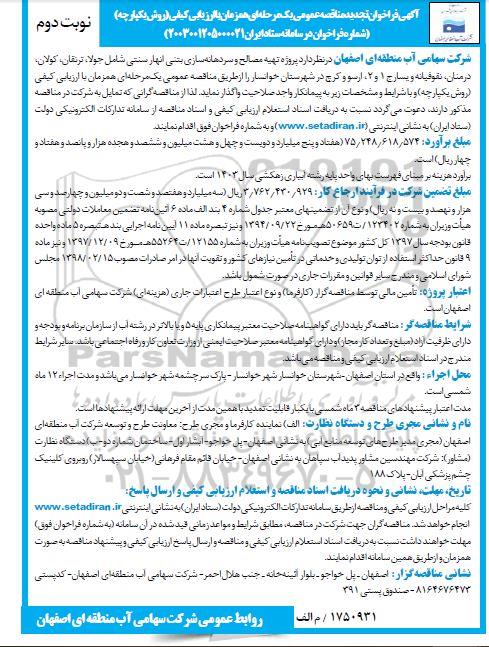 آگهی فراخوان تجدید مناقصه عمومی یک مرحله‌ای همزمان با ارزیابی کیفی (روش یکپارچه)
(شماره فراخوان در سامانه ستاد ایران ۲۰۰۳۰۰۱۲۰۵۰۰۰۰۲۱)
نوبت دوم
شرکت سهامی آب منطقه‌ای اصفهان در نظر دارد پروژه تهیه مصالح و سردهانه‌سازی بتنی انهار سنتی شامل جولا، ترنقان، کولان،
درمنان، نقوفیانه و یسارج ۱ و ۲، ارسو و کرج در شهرستان خوانسار را از طریق مناقصه عمومی یک مرحله‌ای همزمان با ارزیابی کیفی
(روش یکپارچه) و با شرایط و مشخصات زیر به پیمانکار واجد صلاحیت واگذار نماید. لذا از مناقصه‌گرانی که تمایل به شرکت در مناقصه
مذکور دارند، دعوت می‌گردد نسبت به دریافت اسناد استعلام ارزیابی کیفی و اسناد مناقصه از سامانه تدارکات الکترونیکی دولت
(ستاد ایران) به نشانی اینترنتی (www.setadiran.ir) و به شماره فراخوان فوق اقدام نمایند.
مبلغ برآورد: ۷۵,۲۴۸,۶۱۸,۵۷۴ (هفتاد و پنج میلیارد و دویست و چهل و هشت میلیون و ششصد و هجده هزار و پانصد و هفتاد و
چهار ریال) است.
برآورد هزینه بر مبنای فهرست بهای واحد پایه رشته آبیاری زهکشی سال ۱۴۰۳ است.
مبلغ تضمین شرکت در فرآیند ارجاع کار: ۳,۷۶۲,۴۳۰,۹۲۹ ریال (سه میلیارد و هفتصد و شصت و دو میلیون و چهارصد و سی
هزار و نهصد و بیست و نه ریال) و نوع آن از تضمینهای معتبر جدول شماره ۴ بند الف ماده ۶ آئین‌نامه تضمین معاملات دولتی مصوبه
هیأت وزیران به شماره ۱۲۳۴۰۲/ت۵۰۶۵۹هـ مورخ ۱۳۹۴/۰۹/۲۲ و نیز تبصره ماده ۱۱ آیین نامه اجرایی بند هـ تبصره ۵ ماده واحده
قانون بودجه سال ۱۳۹۷ کل کشور موضوع تصویب‌نامه هیأت وزیران به شماره ۱۲۱۵۵/ت۵۵۲۶۴هـ مورخ ۱۳۹۷/۱۲/۰۹ و نیز ماده
۹ قانون حداکثر استفاده از توان تولیدی و خدماتی در تأمین نیازهای کشور و تقویت آنها در امر صادرات مصوب ۱۳۹۸/۰۲/۱۵ مجلس
شورای اسلامی و مندرج سایر قوانین و مقررات جاری در صورت شمول باشد.
اعتبار پروژه: تأمین مالی توسط مناقصه‌گزار (کارفرما) و نوع اعتبار طرح اعتبارات جاری (هزینه‌ای) شرکت سهامی آب منطقه ای
اصفهان است.
شرایط مناقصه‌گر: مناقصه‌گر باید دارای گواهینامه صلاحیت معتبر پیمانکاری پایه ۵ و یا بالاتر در رشته آب از سازمان برنامه و بودجه و
دارای ظرفیت آزاد (مبلغ و تعداد کار مجاز) و دارای گواهینامه معتبر صلاحیت ایمنی از وزارت تعاون کار و رفاه اجتماعی باشد. سایر شرایط
مندرج در اسناد استعلام ارزیابی کیفی و مناقصه می‌باشد.
محل اجراء: واقع در استان اصفهان -شهرستان خوانسار شهر خوانسار - پارک سرچشمه شهر خوانسار می‌باشد و مدت اجراء ۱۲ ماه
شمسی است.
مدت اعتبار پیشنهادهای مناقصه ۳ ماه شمسی با یکبار قابلیت تمدید با همین مدت از آخرین مهلت ارائه پیشنهادها است.
نام و نشانی مجری طرح و دستگاه نظارت: الف) نماینده کارفرما و مجری طرح: معاونت طرح و توسعه شرکت آب منطقه‌ای
اصفهان (مجری مدیر طرح‌های توسعه منابع آبی) به نشانی اصفهان - پل خواجو - آبشار اول - ساختمان شماره دو - ب) دستگاه نظارت
(مشاور): شرکت مهندسین مشاور پدید آب سپاهان به نشانی اصفهان - خیابان قائم مقام فرهانی (خیابان سپهسالار) روبروی کلینیک
چشم پزشکی آبان - پلاک ۱۸۸
تاریخ، مهلت، نشانی و نحوه دریافت اسناد مناقصه و استعلام ارزیابی کیفی و ارسال پاسخ:
کلیه مراحل ارزیابی کیفی و مناقصه از طریق سامانه تدارکات الکترونیکی دولت (ستاد ایران) به نشانی اینترنتی www.setadiran.ir
انجام خواهد شد. مناقصه گران جهت شرکت در مناقصه، مطابق شرایط و مواعد زمانی قید شده در آن سامانه (به شماره فراخوان فوق)
مهلت خواهند داشت نسبت به دریافت اسناد استعلام ارزیابی کیفی و مناقصه و ارسال پاسخ ارزیابی کیفی و پیشنهاد مناقصه به صورت
همزمان و از طریق همین سامانه اقدام نمایند.
نشانی مناقصه‌گزار: اصفهان - پل خواجو - بلوار آئینه‌خانه - جنب هلال احمر - شرکت سهامی آب منطقه‌ای اصفهان - کدپستی
۸۱۶۴۶۷۶۴۷۳ - صندوق پستی ۳۹۱
۱۷۵۰۹۳۱ / م الف
روابط عمومی شرکت سهامی آب منطقه ای اصفهان